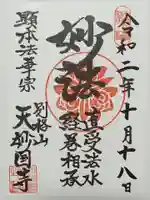 令和二年十月十八日
直受法水
経巻相承
妙法
顕本法華宗
別格山
天妙国寺